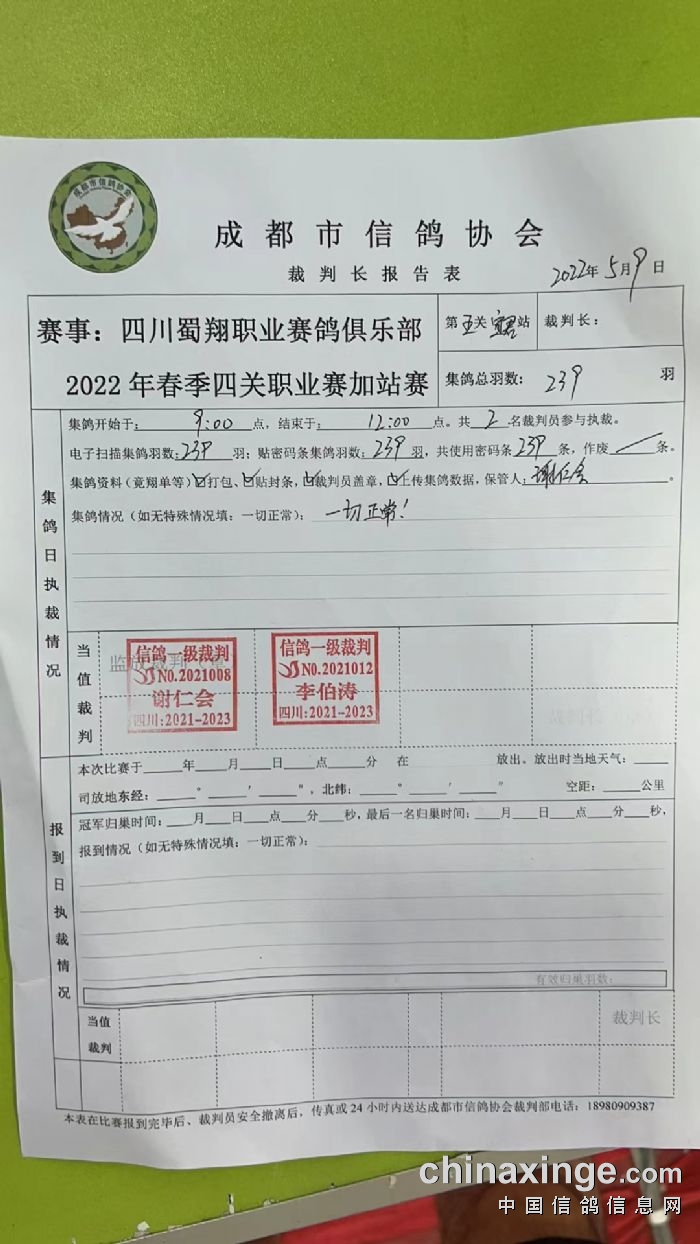 成都市信鸽协会
成都市信鸽协会
裁判长报告表
2022年5月9日
赛事：四川蜀翔职业赛鸽俱乐部
2022年春季四关职业赛加站赛
第五关 站
裁判长：
集鸽总羽数：239 羽
集鸽日执裁情况
集鸽开始于：9:00点，结束于：12:00点。共2名裁判员参与执裁。
电子扫描集鸽羽数：239羽；贴密码条集鸽羽数：239羽，共使用密码条239条，作废 条。
集鸽资料（竟翔单等）☑打包、☑贴封条，☑裁判员盖章，☑上传集鸽数据，保管人：谢仁会。
集鸽情况（如无特殊情况填：一切正常）：一切正常！
当值裁判
监放裁判
信鸽一级裁判
NO.2021008
谢仁会
四川:2021-2023
信鸽一级裁判
NO.2021012
李伯涛
四川:2021-2023
报到日执裁情况
本次比赛于____年____月____日____点____分 在 放出。放出时当地天气：____
司放地东经：____°____′____″，北纬：____°____′____″ 空距：____公里
冠军归巢时间：____月____日____点____分____秒，最后一名归巢时间：____月____日____点____分____秒，
报到情况（如无特殊情况填：一切正常）：
有效归巢羽数：
当值裁判
裁判长
本表在比赛报到完毕后、裁判员安全撤离后，传真或24小时内送达成都市信鸽协会裁判部电话：18980909387
chinaxinge.com
中国信鸽信息网